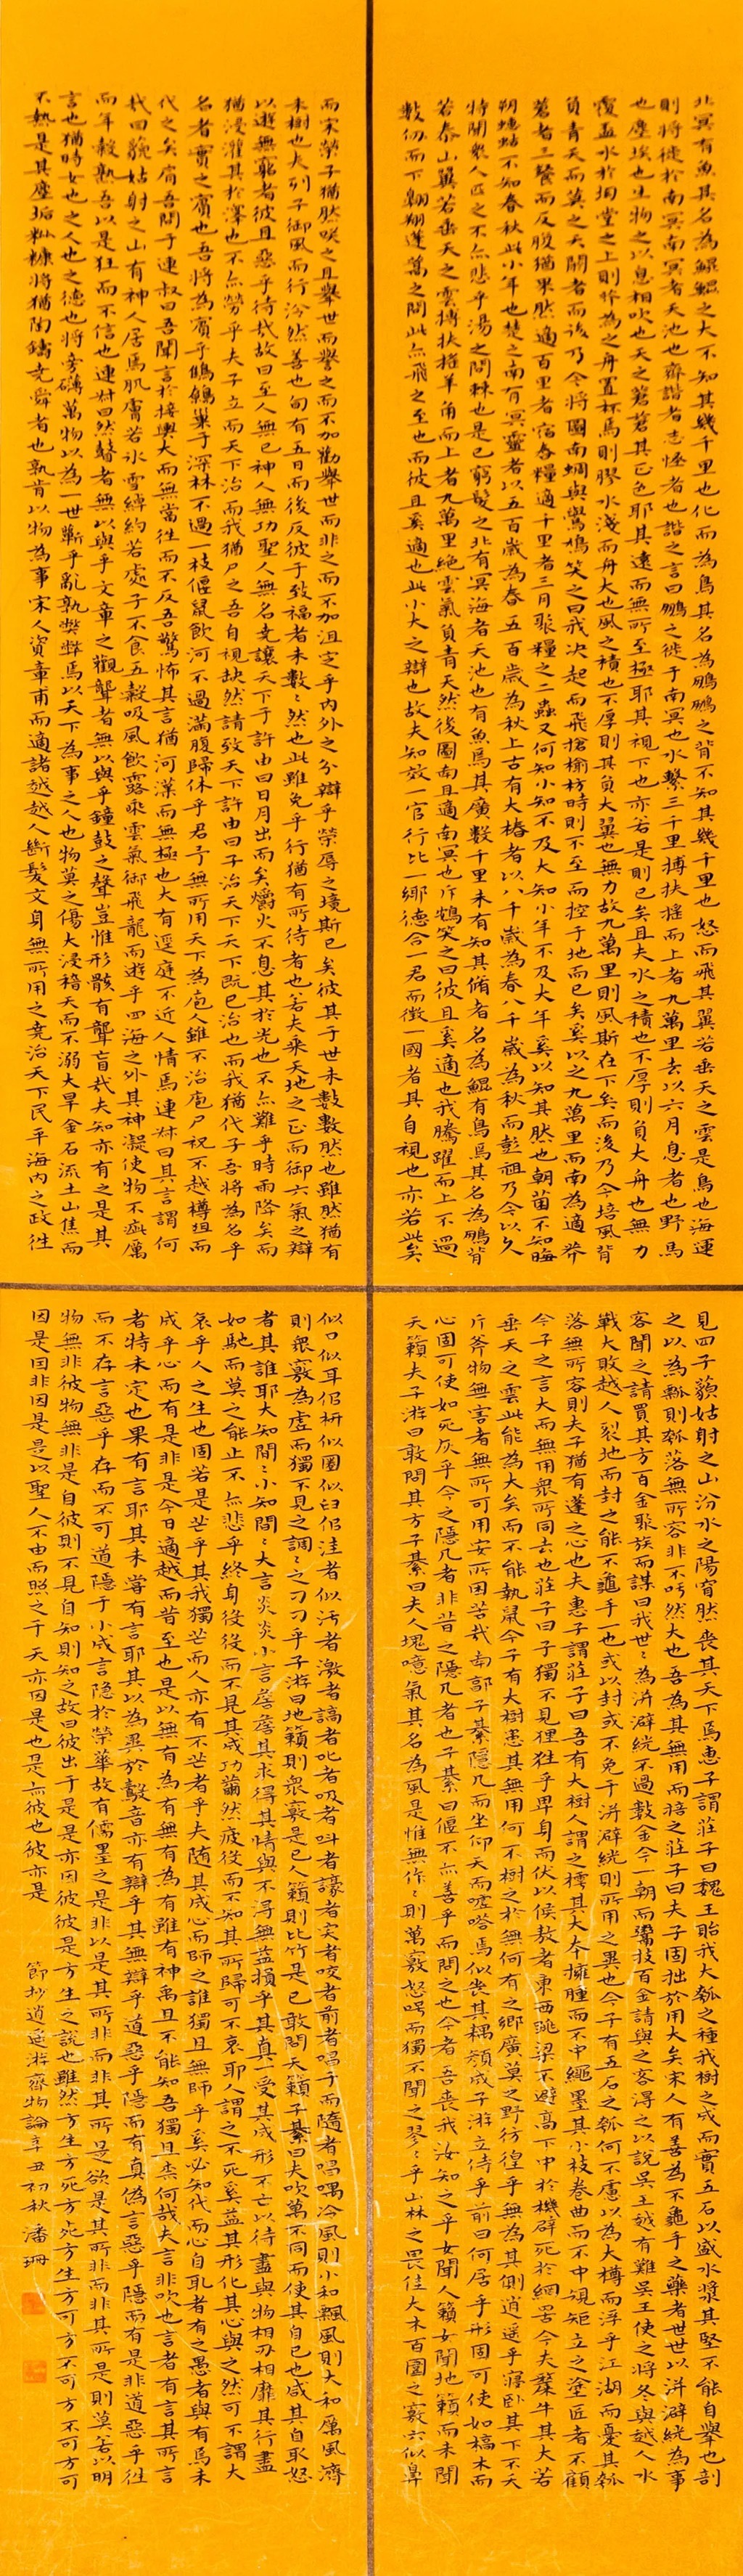 北冥有魚其名為鯤鯤之大不知其幾千里也化而為鳥其名為鵬鵬之背不知其幾千里也怒而飛其翼若垂天之雲是鳥也海運
則將徙於南冥南冥者天池也齊諧者志怪者也諧之言曰鵬之徙于南冥也水擊三千里摶扶搖而上者九萬里去以六月息者也野馬
也塵埃也生物之以息相吹也天之蒼蒼其正色耶其遠而無所至極耶其視下也亦若是則已矣且夫水之積也不厚則負大舟也無力
覆盃水於坳堂之上則芥為之舟置杯焉則膠水淺而舟大也風之積也不厚則其負大翼也無力故九萬里則風斯在下矣而後乃今培風背
負青天而莫之夭閼者而後乃今將圖南蜩與鷽鳩笑之曰我決起而飛搶榆枋時則不至而控于地而已矣奚以之九萬里而南為適莽
蒼者三餐而反腹猶果然適百里者宿舂糧適千里者三月聚糧之二蟲又何知小知不及大知小年不及大年奚以知其然也朝菌不知晦
朔蟪蛄不知春秋此小年也楚之南有冥靈者以五百歲為春五百歲為秋上古有大椿者以八千歲為春八千歲為秋而彭祖乃今以久
特聞眾人匹之不亦悲乎湯之問棘也是已窮髮之北有冥海者天池也有魚焉其廣數千里未有知其脩者名為鯤有鳥焉其名為鵬背
若泰山翼若垂天之雲摶扶搖羊角而上者九萬里絕雲氣負青天然後圖南且適南冥也斥鴳笑之曰彼且奚適也我騰躍而上不過
數仞而下翱翔蓬蒿之間此亦飛之至也而彼且奚適也此小大之辯也故夫知效一官行比一鄉德合一君而徵一國者其自視也亦若此矣
而宋榮子猶然笑之且舉世而譽之而不加勸舉世而非之而不加沮定乎內外之分辯乎榮辱之境斯已矣彼其于世未數數然也雖然猶有
未樹也夫列子御風而行泠然善也旬有五日而後反彼于致福者未數々然也此雖免乎行猶有所待者也若夫乘天地之正而御六氣之辯
以遊無窮者彼且惡乎待哉故曰至人無己神人無功聖人無名堯讓天下于許由曰日月出而矣爝火不息其於光也不亦難乎時雨降矣而
猶浸灌其於澤也不亦勞乎夫子立而天下治而我猶尸之吾自視缺然請致天下許由曰子治天下天下既已治也而我猶代子吾將為名乎
名者實之賓也吾將為賓乎鷦鷯巢于深林不過一枝偃鼠飲河不過滿腹歸休乎君予無所用天下為庖人雖不治庖尸祝不越樽俎而
代之矣肩吾問于連叔曰吾聞言於接輿大而無當往而不反吾驚怖其言猶河漢而無極也大有逕庭不近人情焉連叔曰其言謂何
哉曰藐姑射之山有神人居焉肌膚若冰雪綽約若處子不食五穀吸風飲露乘雲氣御飛龍而遊乎四海之外其神凝使物不疵厲
而年穀熟吾以是狂而不信也連叔曰然瞽者無以與乎文章之觀聾者無以與乎鐘鼓之聲豈惟形骸有聾盲哉夫知亦有之是其
言也猶時女也之人也之德也將旁礴萬物以為一世蘄乎亂孰弊弊焉以天下為事之人也物莫之傷大浸稽天而不溺大旱金石流土山焦而
不熱是其塵垢粃糠將猶陶鑄堯舜者也孰肯以物為事宋人資章甫而適諸越越人斷髮文身無所用之堯治天下民平海內之政往
見四子藐姑射之山汾水之陽窅然喪其天下焉惠子謂莊子曰魏王貽我大瓠之種我樹之成而實五石以盛水漿其堅不能自舉也剖
之以為瓢則瓠落無所容非不呺然大也吾為其無用而掊之莊子曰夫子固拙於用大矣宋人有善為不龜手之藥者世世以洴澼絖為事
客聞之請買其方百金聚族而謀曰我世々為洴澼絖不過數金今一朝而鬻技百金請與之客得之以說吳王越有難吳王使之將冬與越人水
戰大敗越人裂地而封之能不龜手一也或以封或不免于洴澼絖則所用之異也今子有五石之瓠何不慮以為大樽而浮乎江湖而憂其瓠
落無所容則夫子猶有蓬之心也夫惠子謂莊子曰吾有大樹人謂之樗其大本擁腫而不中繩墨其小枝卷曲而不中規矩立之塗匠者不顧
今子之言大而無用眾所同去也莊子曰子獨不見狸狌乎卑身而伏以候敖者東西跳梁不避高下中於機辟死於網罟今夫斄牛其大若
垂天之雲此能為大矣而不能執鼠今子有大樹患其無用何不樹之於無何有之鄉廣莫之野彷徨乎無為其側逍遙乎寢卧其下不夭
斤斧物無害者無所可用安所困苦哉南郭子綦隱几而坐仰天而噓嗒焉似喪其耦顏成子游立侍乎前曰何居乎形固可使如槁木而
心固可使如死灰乎今之隱几者非昔之隱几者也子綦曰偃不亦善乎而問之也今者吾喪我汝知之乎女聞人籟女聞地籟而未聞
天籟夫子游曰敢問其方子綦曰夫人塊噫氣其名為風是惟無作々則萬竅怒呺而獨不聞之翏々乎山林之畏佳大木百圍之竅穴似鼻
似口似耳似枅似圈似臼似洼者似污者激者謞者叱者吸者叫者譹者宎者咬者前者唱于而隨者唱喁泠風則小和飄風則大和厲風濟
則眾竅為虛而獨不見之調々之刁刁乎子游曰地籟則眾竅是已人籟則比竹是已敢問天籟子綦曰夫吹萬不同而使其自已也咸其自取怒
者其誰耶大知閒々小知間々大言炎炎小言詹詹其求得其情與不得無益損乎其真一受其成形不亡以待盡與物相刃相靡其行盡
如馳而莫之能止不亦悲乎終身役役而不見其成功薾然疲役而不知其所歸可不哀耶人謂之不死奚益其形化其心與之然可不謂大
哀乎人之生也固若是芒乎其我獨芒而人亦有不芒者乎夫隨其成心而師之誰獨且無師乎奚必知代而心自取者有之愚者與有焉未
成乎心而有是非是今日適越而昔至也是以無有為有無有為有雖有神禹且不能知吾獨且柰何哉夫言非吹也言者有言其所言
者特未定也果有言耶其未嘗有言耶其以為異於鷇音亦有辯乎其無辯乎道惡乎隱而有真偽言惡乎隱而有是非道惡乎往
而不存言惡乎存而不可道隱于小成言隱於榮華故有儒墨之是非以是其所非而非其所是欲是其所非而非其所是則莫若以明
物無非彼物無非是自彼則不見自知則知之故曰彼出于是是亦因彼彼是方生之說也雖然方生方死方死方生方可方不可方不可方可
因是因非因是是以聖人不由而照之于天亦因是也是亦彼也彼亦是
節抄逍遙遊齊物論辛丑初秋 潘珊